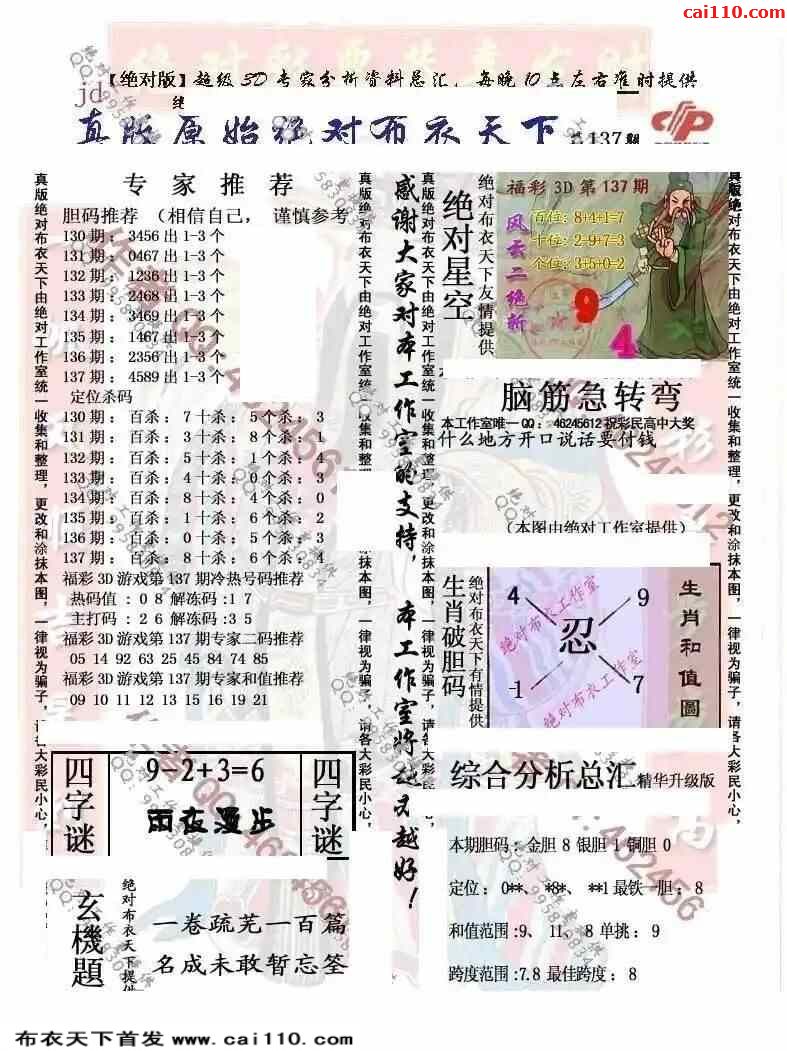 cai110.com
【绝对版】超级3D专家分析资料总汇，每晚10点左右准时提供
jd
真版原始绝对布衣天下
137期
真版绝对布衣天下由绝对工作室统一收集和整理，更改和涂抹本图，一律视为骗子，请各大彩民小心，
专家推荐
胆码推荐 （相信自己， 谨慎参考
130期：3456出1-3个
131期：0467出1-3个
132期：1236出1-3个
133期：2468出1-3个
134期：3469出1-3个
135期：1467出1-3个
136期：2356出1-3个
137期：4589出1-3个
定位杀码
130期： 百杀：7十杀：5个杀：3
131期： 百杀：3十杀：8个杀：1
132期： 百杀：5十杀：1个杀：4
133期： 百杀：4十杀：0个杀：3
134期： 百杀：8十杀：4个杀：0
135期： 百杀：1十杀：6个杀：2
136期： 百杀：0十杀：5个杀：3
137期： 百杀：8十杀：6个杀：4
福彩3D游戏第137期冷热号码推荐
热码值 ：0 8 解冻码：1 7
主打码 ：2 6 解冻码：3 5
福彩3D游戏第137期专家二码推荐
05 14 92 63 25 45 84 74 85
福彩3D游戏第137期专家和值推荐
09 10 11 12 13 15 16 19 21
四字谜
9-2+3=6
雨夜漫步
四字谜
玄機題
绝对布衣天下提供
一卷疏芜一百篇
名成未敢暂忘筌
感谢大家对本工作室的支持，本工作室将越来越好！
绝对星空
绝对布衣天下友情提供
福彩3D第137期
风云二绝析
百位：8+4+1=7
十位：2+9+7=3
个位：3+5+0=2
9
4
脑筋急转弯
本工作室唯一QQ：46245612祝彩民高中大奖
什么地方开口说话要付钱
（本图由绝对工作室提供）
生肖破胆码
绝对布衣天下有情提供
4
9
忍
1
7
绝对布衣工作室
绝对布衣工作室
生肖和值圖
综合分析总汇精华升级版
本期胆码：金胆 8 银胆 1 铜胆 0
定位： 0**、 *8*、 **1最铁一胆： 8
和值范围:9、 11、 8 单挑： 9
跨度范围:7.8 最佳跨度： 8
真版绝对布衣天下由绝对工作室统一收集和整理，更改和涂抹本图，一律视为骗子，请各大彩民小心，
布衣天下首发 www.cai110.com